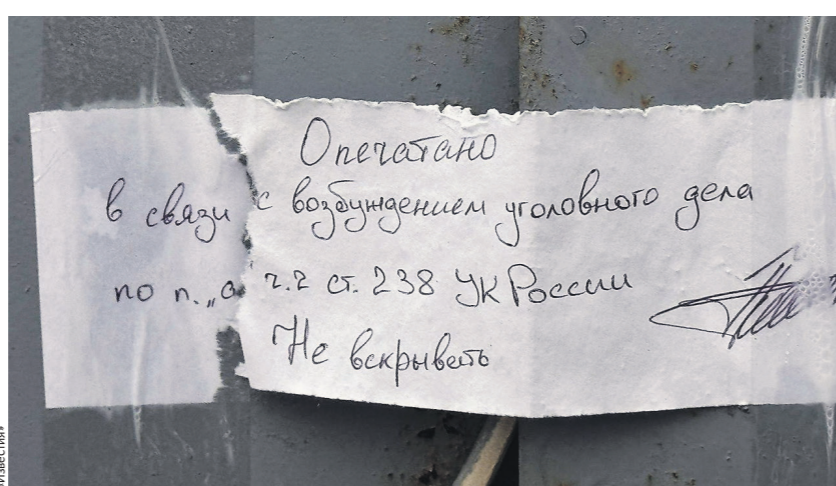 Опечатано
в связи с возбуждением уголовного дела
по п. „а ч.2 ст. 238 УК России
Не вскрывать
Известия"